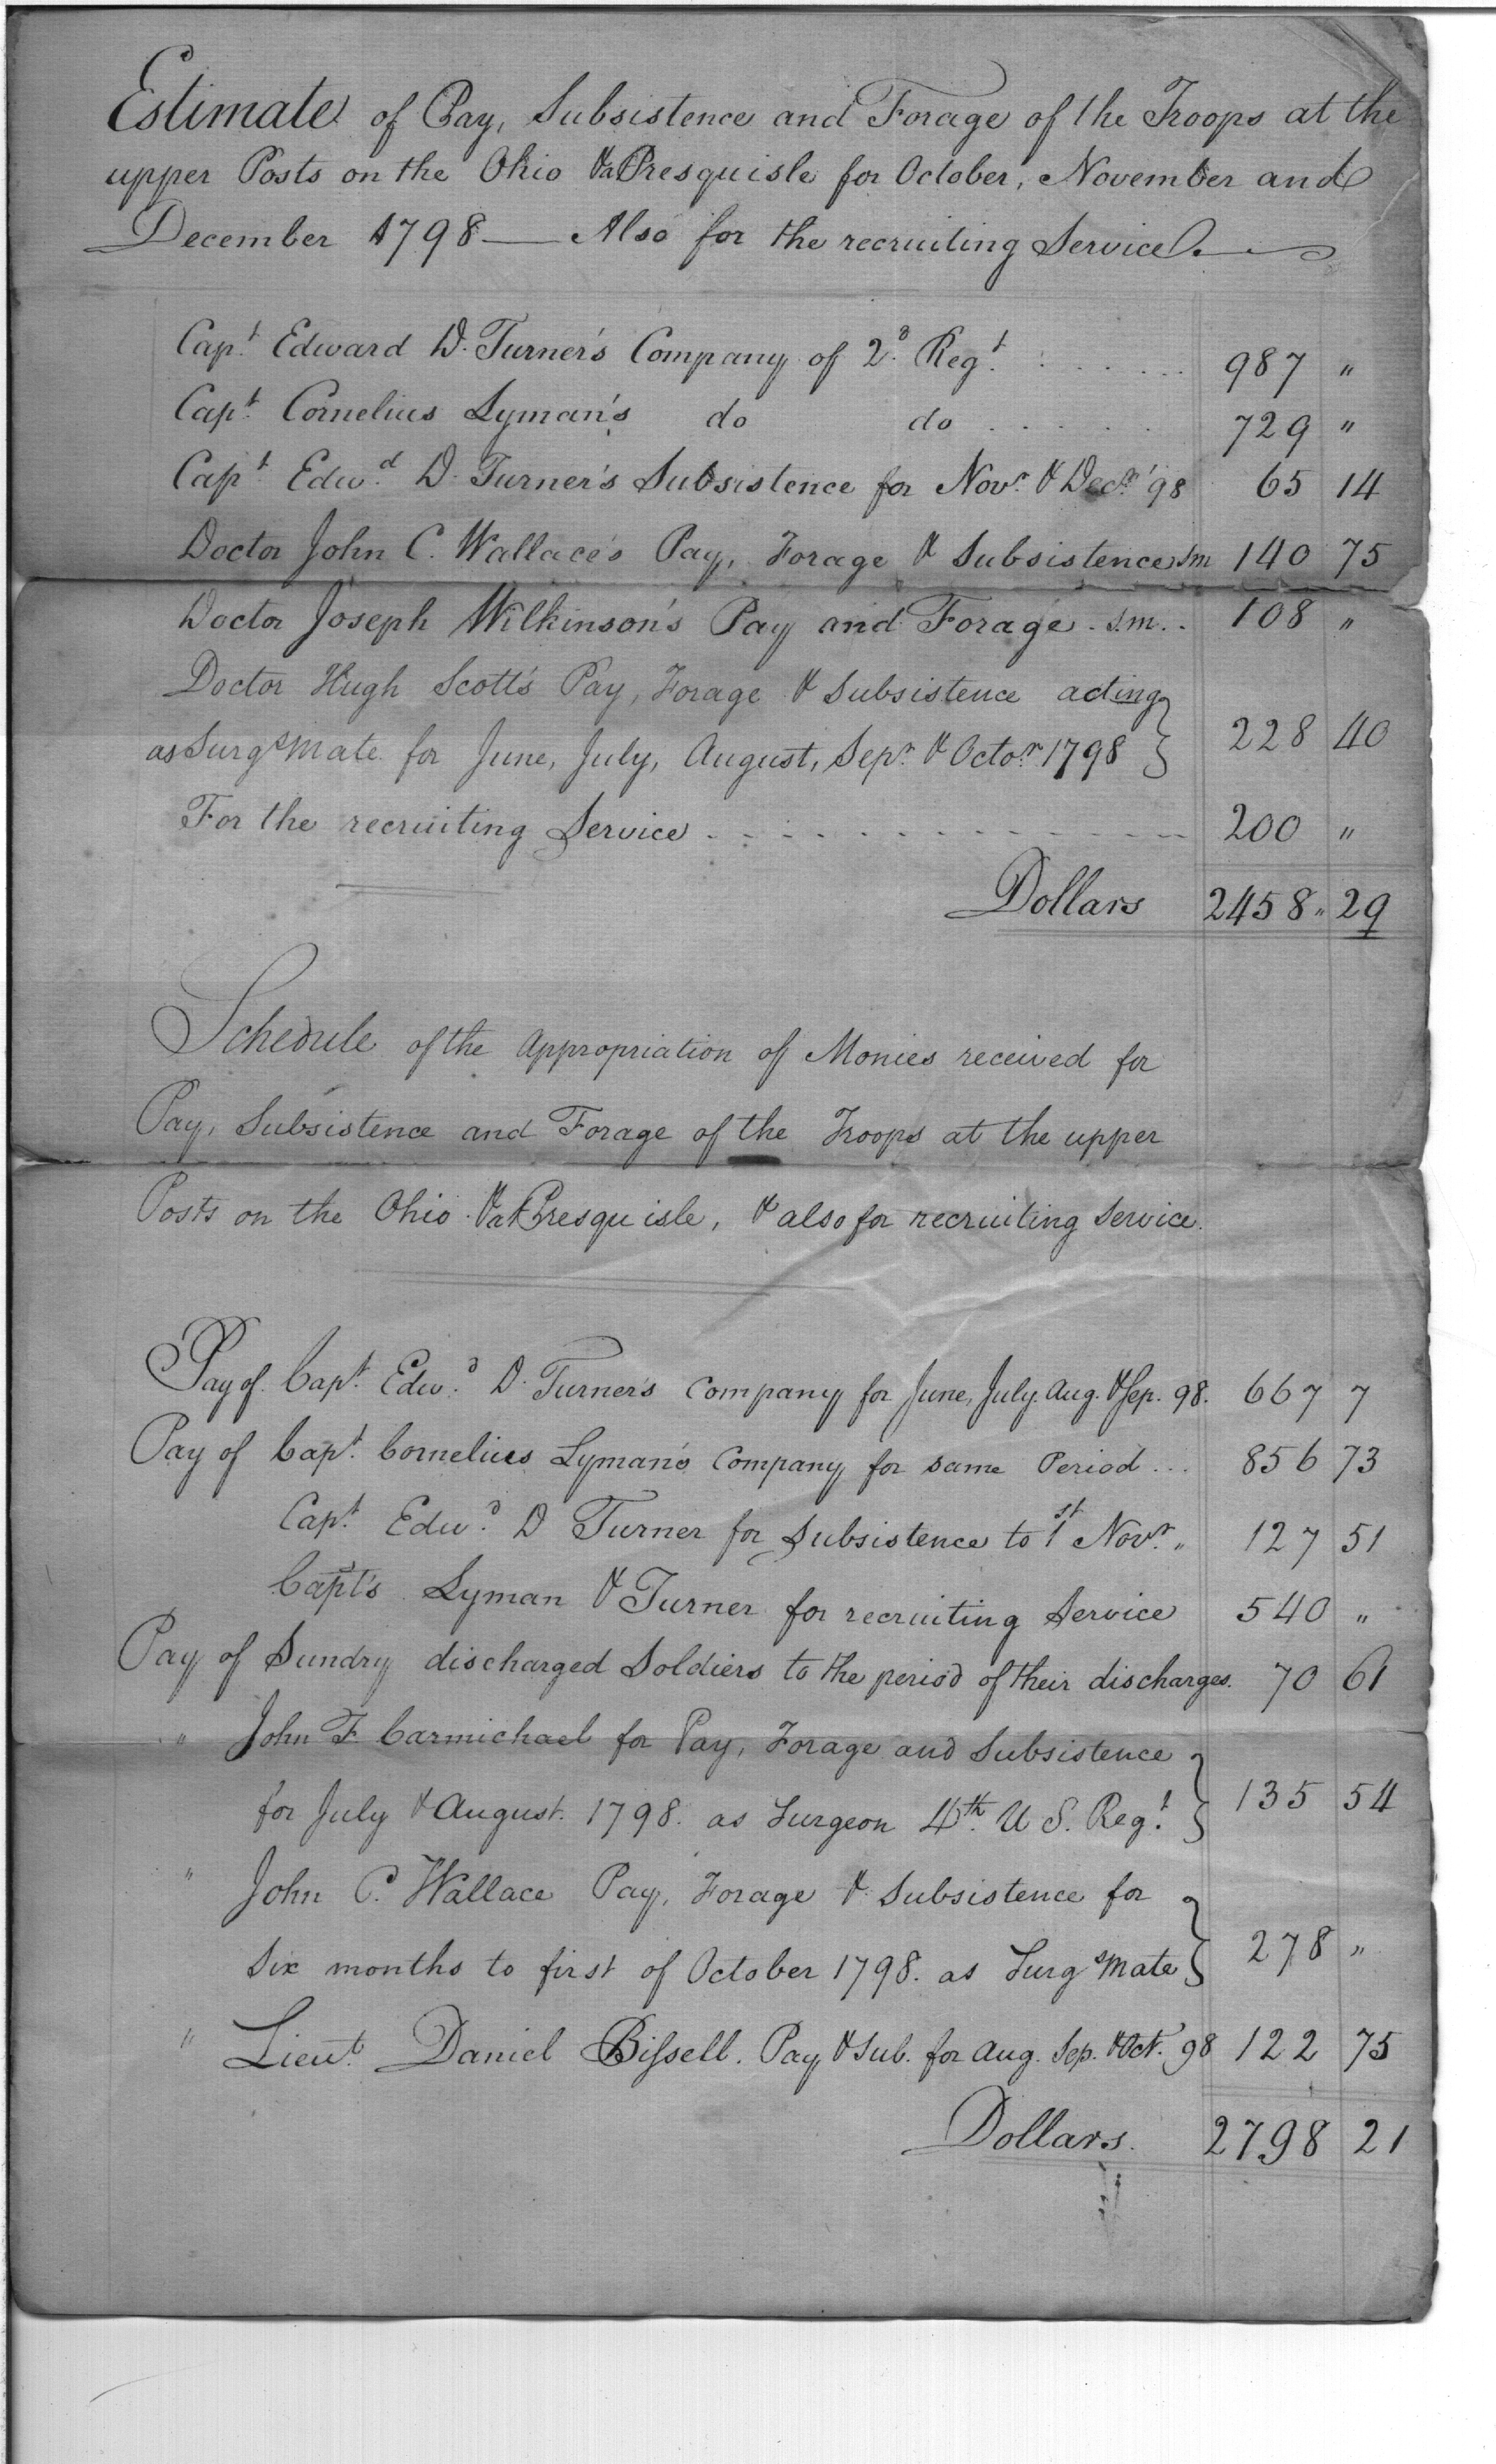 Estimate of Pay, Subsistence and Forage of the Troops at the
upper Posts on the Ohio & a Presquisle for October, November and
December 1798 — Also for the recruiting Service.
Capt. Edward D. Turner's Company of 2d. Regt. . . . . . . 987 "
Capt. Cornelius Lyman's do do . . . . . 729 "
Capt. Edwd. D. Turner's Subsistence for Novr. & Decr. '98 65 14
Doctor John C. Wallace's Pay, Forage & Subsistence 3m 140 75
Doctor Joseph Wilkinson's Pay and Forage . 3.m. . 108 "
Doctor Hugh Scott's Pay, Forage & Subsistence acting
as Surgs Mate for June, July, August, Sepr. & Octor. 1798 } 228 40
For the recruiting Service . . . . . . . . . . . . 200 "
Dollars 2458 " 29
Schedule of the Appropriation of Monies received for
Pay, Subsistence and Forage of the Troops at the upper
Posts on the Ohio & a Presquisle, & also for recruiting Service.
Pay of Capt. Edwd. D. Turner's Company for June, July. Aug. & Sep. 98. 667 7
Pay of Capt. Cornelius Lyman's Company for same Period ... 856 73
Capt. Edwd. D Turner for Subsistence to 1st Novr. " 127 51
Capt's Lyman & Turner for recruiting Service 540 "
Pay of Sundry discharged Soldiers to the period of their discharges. 70 61
" John F. Carmichael for Pay, Forage and Subsistence
for July & August. 1798. as Surgeon 4th. U S. Regt. } 135 54
" John C. Wallace Pay, Forage & Subsistence for
Six months to first of October 1798. as Surgs Mate } 278 "
" Lieut. Daniel Bissell. Pay & Sub. for Aug. Sep. & Oct. 98 122 75
Dollars. 2798 21